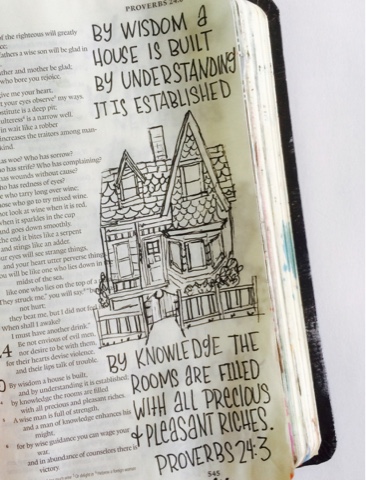 PROVERBS 24:3
BY WISDOM A
HOUSE IS BUILT
BY UNDERSTANDING
IT IS ESTABLISHED
of the righteous will greatly
athers a wise son will be glad in
ather and mother be glad;
who bore you rejoice.
give me your heart,
t your eyes observe my ways.
stitute is a deep pit;
ulteress is a narrow well.
in wait like a robber
increases the traitors among man-
kind.
as woe? Who has sorrow?
ho has strife? Who has complaining?
as wounds without cause?
has redness of eyes?
e who tarry over wine;
ose who go to try mixed wine.
not look at wine when it is red,
when it sparkles in the cup
and goes down smoothly.
the end it bites like a serpent
and stings like an adder.
ur eyes will see strange things,
and your heart utter perverse things
ou will be like one who lies down in
midst of the sea,
like one who lies on the top of a
They struck me," you will say,
not hurt;
they beat me, but I did not feel
When shall I awake?
I must have another drink."
Be not envious of evil men,
nor desire to be with them,
for their hearts devise violence,
and their lips talk of trouble.
By wisdom a house is built,
and by understanding it is established;
by knowledge the rooms are filled
with all precious and pleasant riches.
A wise man is full of strength,
and a man of knowledge enhances his
might,
for by wise guidance you can wage your
war,
and in abundance of counselors there is
victory.
BY KNOWLEDGE THE
ROOMS ARE FILLED
WITH ALL PRECIOUS
& PLEASANT RICHES.
PROVERBS 24:3
545